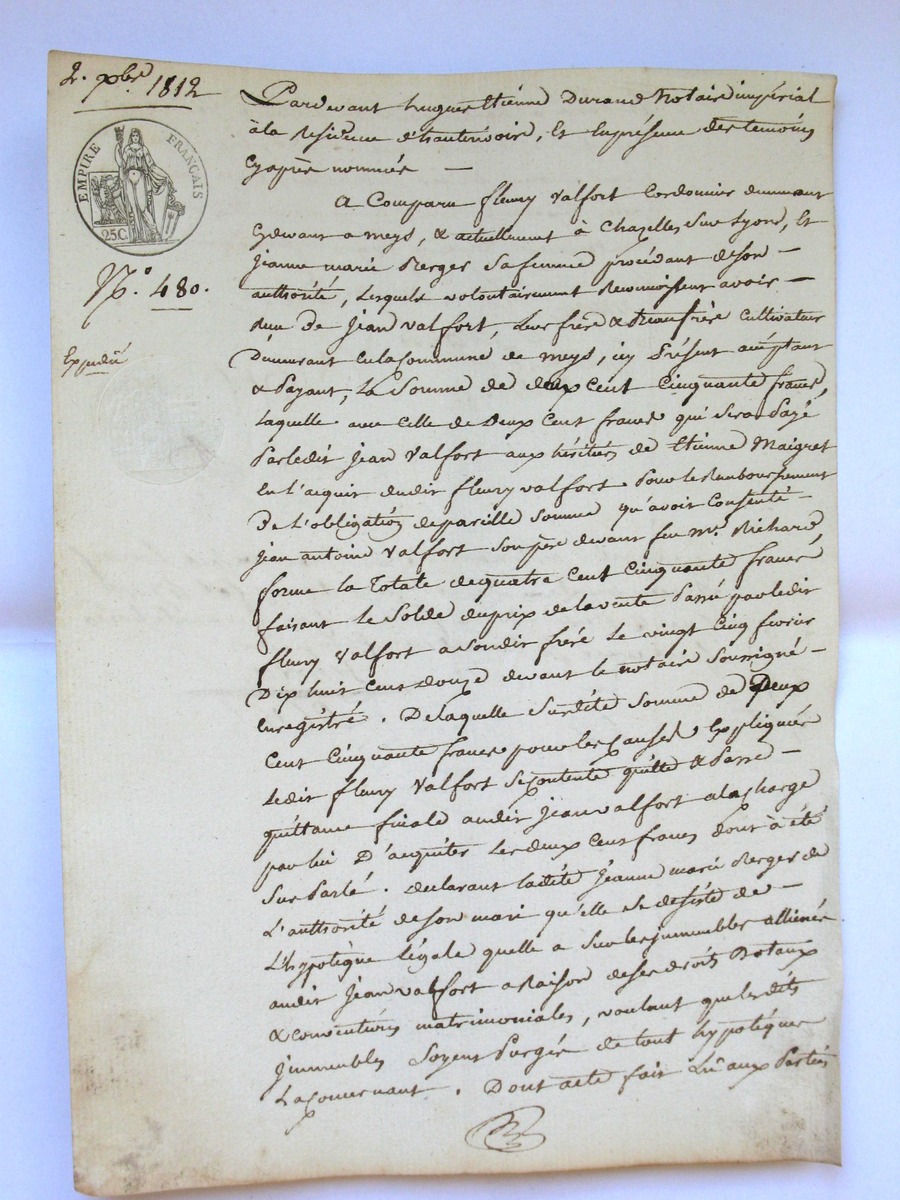 2. xbre 1812
EMPIRE FRANÇAIS
25C.
N.° 480.
Expédié
Pardevant hugues Etienne Durand Notaire impérial
à la Residence d'hauterivoire, Et En présence des temoins
Cy après nommés —
A Comparu fleury Valfort Cordonnier demeurant
Cydevant a meys, & actuellement à Chazelles Sur Lyon, Et
Jeanne marie Berger Sa femme procédant de son —
authorité, Lesquels volontairement Reconnoissent avoir —
Reçu De Jean Valfort, Leur frère & Beaufrère Cultivateur
Demeurant En la Commune de meys, icy Présent acceptant
& Payant, La Somme de deux Cent Cinquante francs,
Laquelle avec Celle de Deux Cent francs qui Sera Payé
Par ledit Jean Valfort aux héritiers de Etienne Maigret
En l'acquit dudit fleury valfort Pour le Remboursement
De L'obligation de pareille Somme qu'avoit Consenté —
Jean antoine Valfort Son père devant feu me. Richard,
forme la Totale de quatre Cent Cinquante francs
faisant le Solde du prix de la vente Passé par ledit
fleury Valfort a Son dit frère le vingt Cinq fevrier
Dix huit Cent douze devant le notaire Soussigné —
Enregistré. De laquelle Susdite Somme de Deux
Cent Cinquante francs pour les Causes Expliquées
Ledit fleury Valfort Se Contente quitte & Passe —
quittance finale audit Jean Valfort a la charge
par lui D'acquiter Les deux Cent francs dont à été
Sus Parlé. declarant ladite Jeanne marie Berger de
L'authorité de Son mari qu'elle Se desiste de —
L'hypotèque légale quelle a Sur les immeubles alliénés
audit Jean Valfort a Raison de Ses droits Dotaux
& Conventions matrimoniales, voulant que lesdits
Jmmeubles Soyent Purgés de tout hypotèques
La Concernant. Dont acte fait Lû aux Parties